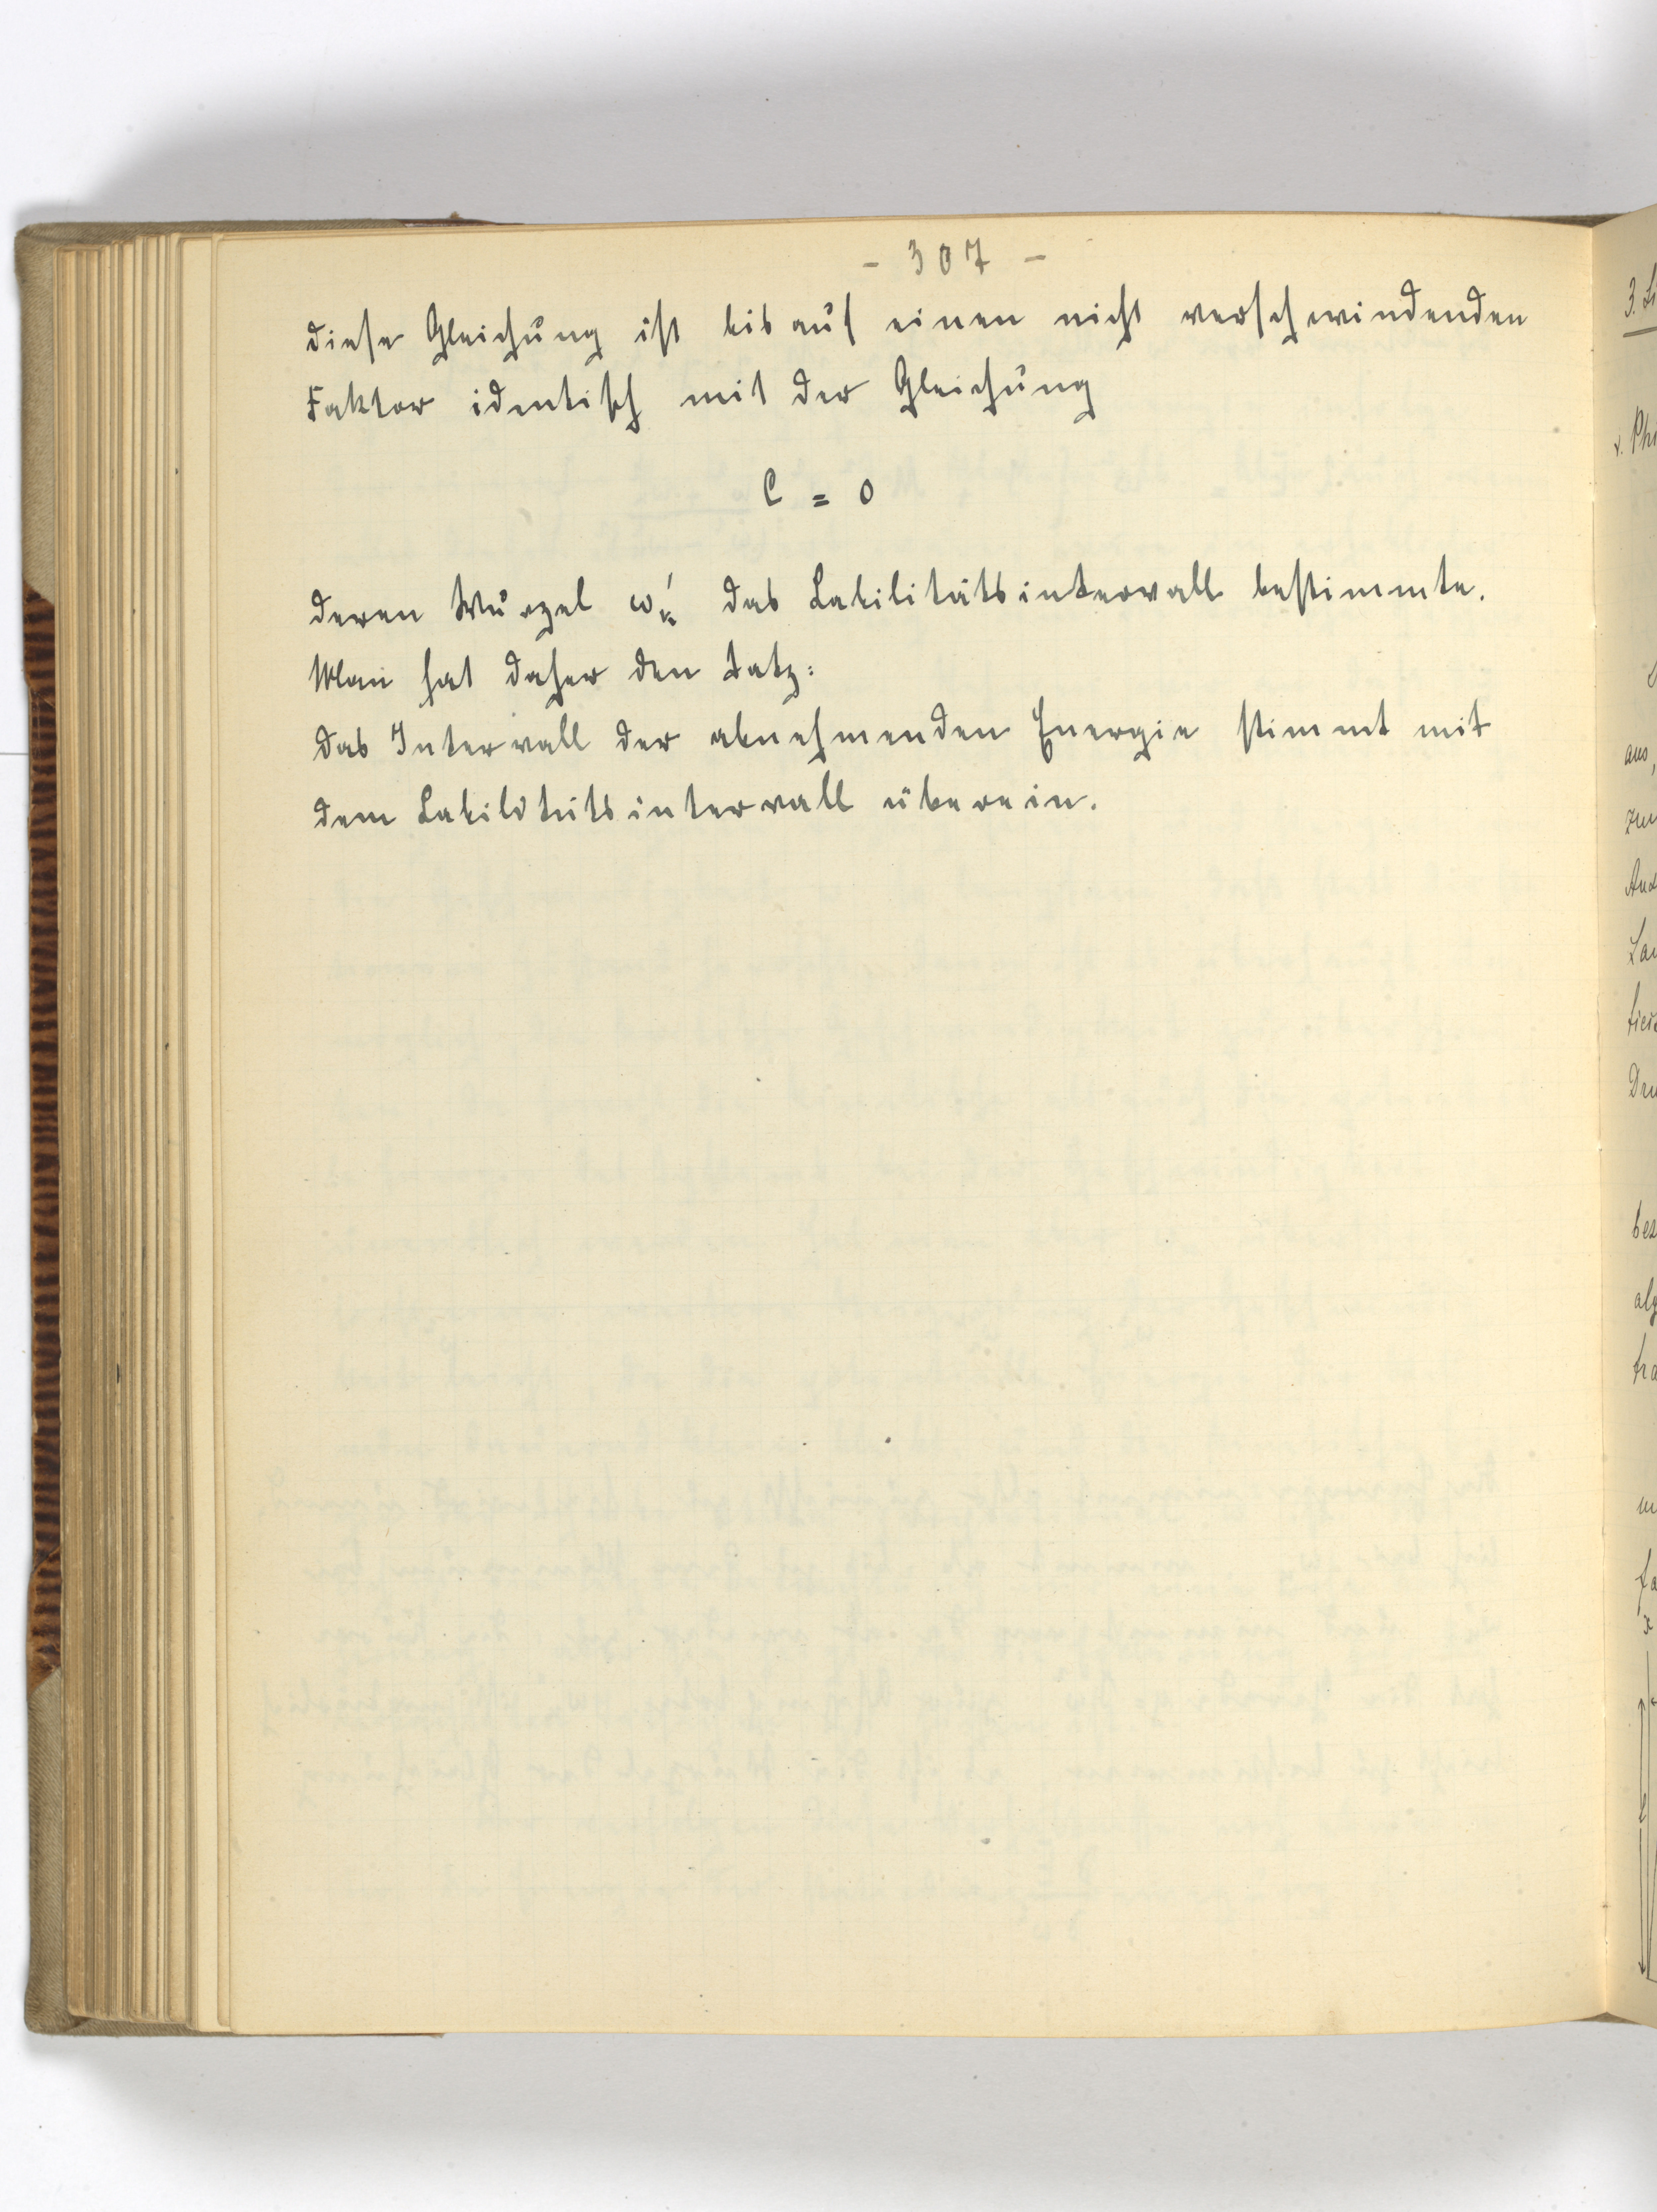 - 307 -
diese Gleichung ist bis auf einen nicht verschwindenden
Faktor identisch mit der Gleichung
C = 0
deren Wurzel ω das Labilitätsintervall bestimmte.
Man hat daher den Satz:
das Intervall der abnehmenden Energie stimmt mit
dem Labilitätsintervall überein.
3.
v. Ph
aus,
bes